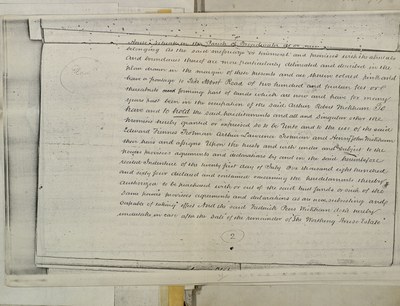 situate in the Parish of
belonging as the said messuage or tenement and premises with its abuttals
and boundaries thereof are more particularly delineated and described in the
plan drawn in the margin of these presents and are thereon colored pink and
have a frontage to Lake Street Road of two hundred and feet or
thereabouts and forming part of lands which are now and have for many
years past been in the occupation of the said Arthur Robert Wickham To
have and to hold the said hereditaments and all and singular other the
premises hereby granted or expressed so to be Unto and to the use of the said
Edward Arthur Lawrence and Henry John Wickham
their heirs and assigns Upon the trusts and with under and subject to the
powers provisoes agreements and declarations by and in the said hereinbefore
recited Indenture of the twenty first day of July One thousand eight hundred
and sixty four declared and contained concerning the hereditaments thereby
authorized to be purchased with or out of the said trust funds or such of the
same powers provisoes agreements and declarations as are now subsisting and
capable of taking effect And the said Frederick Wickham doth hereby
undertake in case after the Sale of the remainder of the Worthing House Estate
2